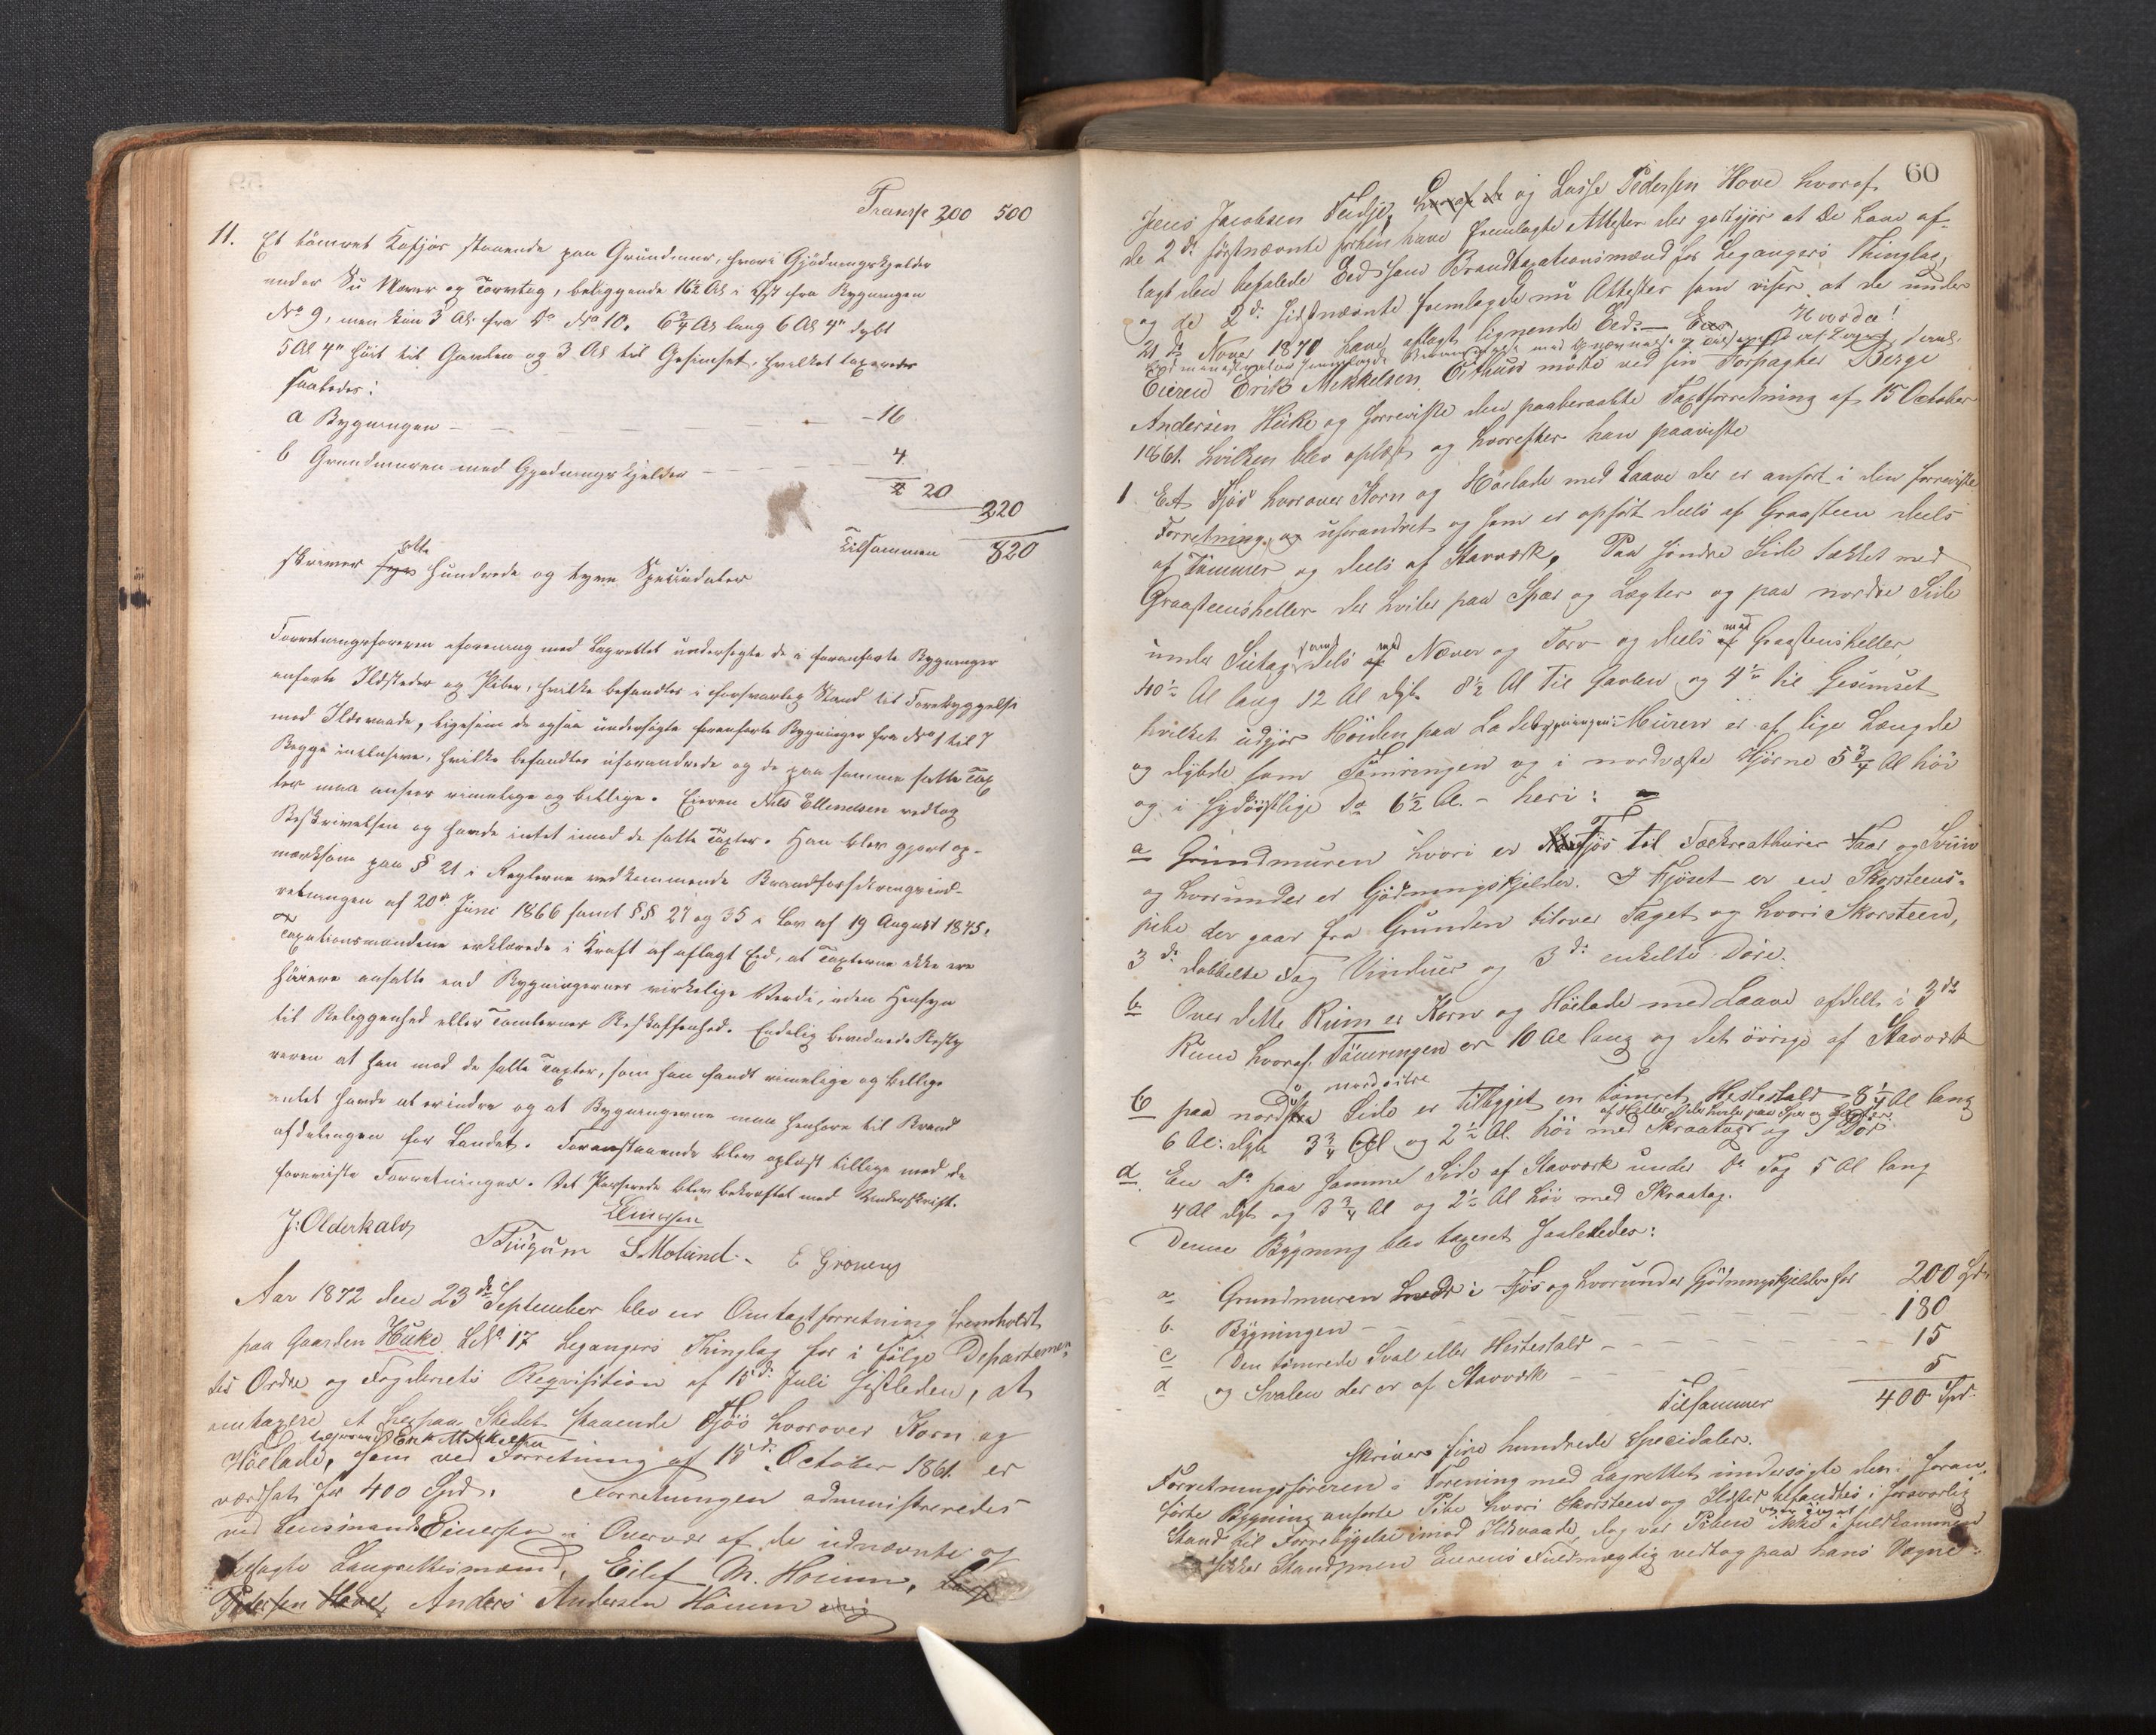 Transp 200 500
11. Et tømret Kufjøs staaende paa Grundmur, hvori Gjødningskjelder
under Su Næver og Torvtag, beliggende 16½ Al i Øst fra Bygningen
No 9, men kun 3 Al. fra Do No 10. 6¾ Al lang 6 Al 4" dybt
5 Al 4" høit til Gavlen og 3 Al til Gesimset, hvilket taxeredes
saaledes:
a Bygningen - 16
b Grundmuren med Gjødningskjelder - 4
20
220
Tilsammen 820
skriver otte hundrede og tyve Speciedaler
Forretningsføreren i forening med Lagrettet undersøgte de i foranførte Bygninger
anførte Ildsteder og Piber, hvilke befandtes i forsvarlig Stand til Forebyggelse
mod Ildsvaade, ligesom de ogsaa undersøgte foranførte Bygninger fra No 1 til 7
Begge inclusive, hvilke befandtes uforandrede og de paa samme satte Tax
ter maa ansees rimelige og billige. Eieren Nils Ellendsen vedtog
Beskrivelsen og havde intet imod de satte Taxter. Han blev gjort op-
mærksom paa § 21 i Reglerne vedkommende Brandforsikringsind-
retningen af 20de Juni 1866 samt §§ 27 og 35 i Lov af 19 August 1845.
Taxationsmændene erklærede i Kraft af aflagt Eed, at Taxterne ikke ere
høiere ansatte end Bygningernes virkelige Værdi, uden Hensyn
til Beliggenhed eller Tomternes Beskaffenhed. Endelig bevidnede Besty
reren at han mod de satte Taxter, som han fandt rimelige og billige
intet havde at erindre og at Bygningerne maa henføres til Brand
afdelingen for Landet. Foranstaaende blev oplæst tillige med de
foreviste Forretninger. Det Passerede blev bekræftet med Underskrift.
Einersen
J: Olderkalv TTjugum S Molund E Grøneng
Aar 1872 den 23de September blev en Omtaxtforretning fremholdt
paa Gaarden Huke LNo 17 Legangers Thinglag for i følge Departemen-
tes Ordre og Fogderiets Reqvisition af 15de Juli sistleden, at
omtaxere et herpaa Stedet staaende Fjøs hvorover Korn og
tilhørende Erik Mikkelsen
Høelade, som ved Forretning af 15de October 1861 er
værdsat for 400 Spd. Forretningen administreredes
ved Lensmand Einersen i Overvær af de udnævnte og
Laugrettesmænd, Eilef N. Hamm, Lasse
Pedersen Hove, Anders Andersen Hamm og
60
Jens Jacobsen hvoraf de og Lasse Pedersen Hove hvoraf
de 2de førstnævnte forhen have fremlagte Attester der godtgjør at de have af-
lagt den befalede Eed som Brandtaxationsmænd for Legangers Thinglag,
og de 2de sidstnævnte fremlagde nu Attester som viser at de under
21de Novbr 1870 have aflagt lignende Eed.
Eieren Erik Mikkelsen mødte ved sin Forpagter Berge
Andersen Huke og foreviste den paaberaabte Taxtforretning af 15 October
1861. hvilken blev oplæst og hvorefter han paaviste
1 Et Fjøs hvorover Korn og Høelade med Laave der er anført i den foreviste
Forretning, og uforandret og som er opført deels af Graasteen deels
af Tømmer og deels af Stavværk, Paa søndre Side tækket med
Graasteensheller der hviler paa Spær og Lægter og paa nordre Side
under Sutag samt dels med Næver og Torv og deels med Graasteensheller,
40½ Al lang 12 Al dyb 8½ Al til Gavlen og 4½ til Gesimset
hvilket udgjør Høiden paa Ladebygningen. Muren er af lige Længde
og dybde som Tømringen og i nordvæste Hjørne 5¾ Al høi
og i sydøstlige Do 6½ Al. - heri:
a Grundmuren hvori er Fjøs til Fækreaturer Faar og Sviin
og hvorunder er Gjødningskjelder. I Fjøset er en Skorsteens-
pibe der gaar fra Grunden tilover Taget og hvori Skorsteen,
3de dobbelte Fag Vinduer og 3de enkelte Døre.
b Over dette Rum er Korn og Høelade med Laave afdelt i 3de
Rum hvoraf Tømringen er 10 Al lang og det øvrige af Stavværk
c paa nordøstre Side er tilbygget en tømret Hestestald 8¼ Al lang
af Heller der hviler paa Spær og Lægter
6 Al: dyb 3¾ Al og 2½ Al. høi med Skraatag og 1 Dør
d En Do paa samme Side af Stavværk under Do Tag 5 Al lang
4 Al dyb og 3¾ Al og 2½ Al høi med Skraatag.
Denne Bygning blev taxeret saaledes:
a Grundmuren hvori Fjøs og hvorunder Gjødningskjelder for 200 Spd
b. Bygningen - 180
c Den tømrede Sval eller Hestestald - 15
d og Svalen der er af Stavværk - 5
Tilsammen 400 Spd:
Skriver fire hundrede Speciedaler.
Forretningsføreren i Forening med Lagrettet undersøgte den i foran-
førte Bygning anførte Pibe hvori Skorsteen og Ildsted befandtes i forsvarlig
Stand til Forebygelse imod Ildsvaade, dog var Piben ikke i fuldkommen
sikker Stand, men Eierens Fuldmægtig vedtog paa hans Vegne